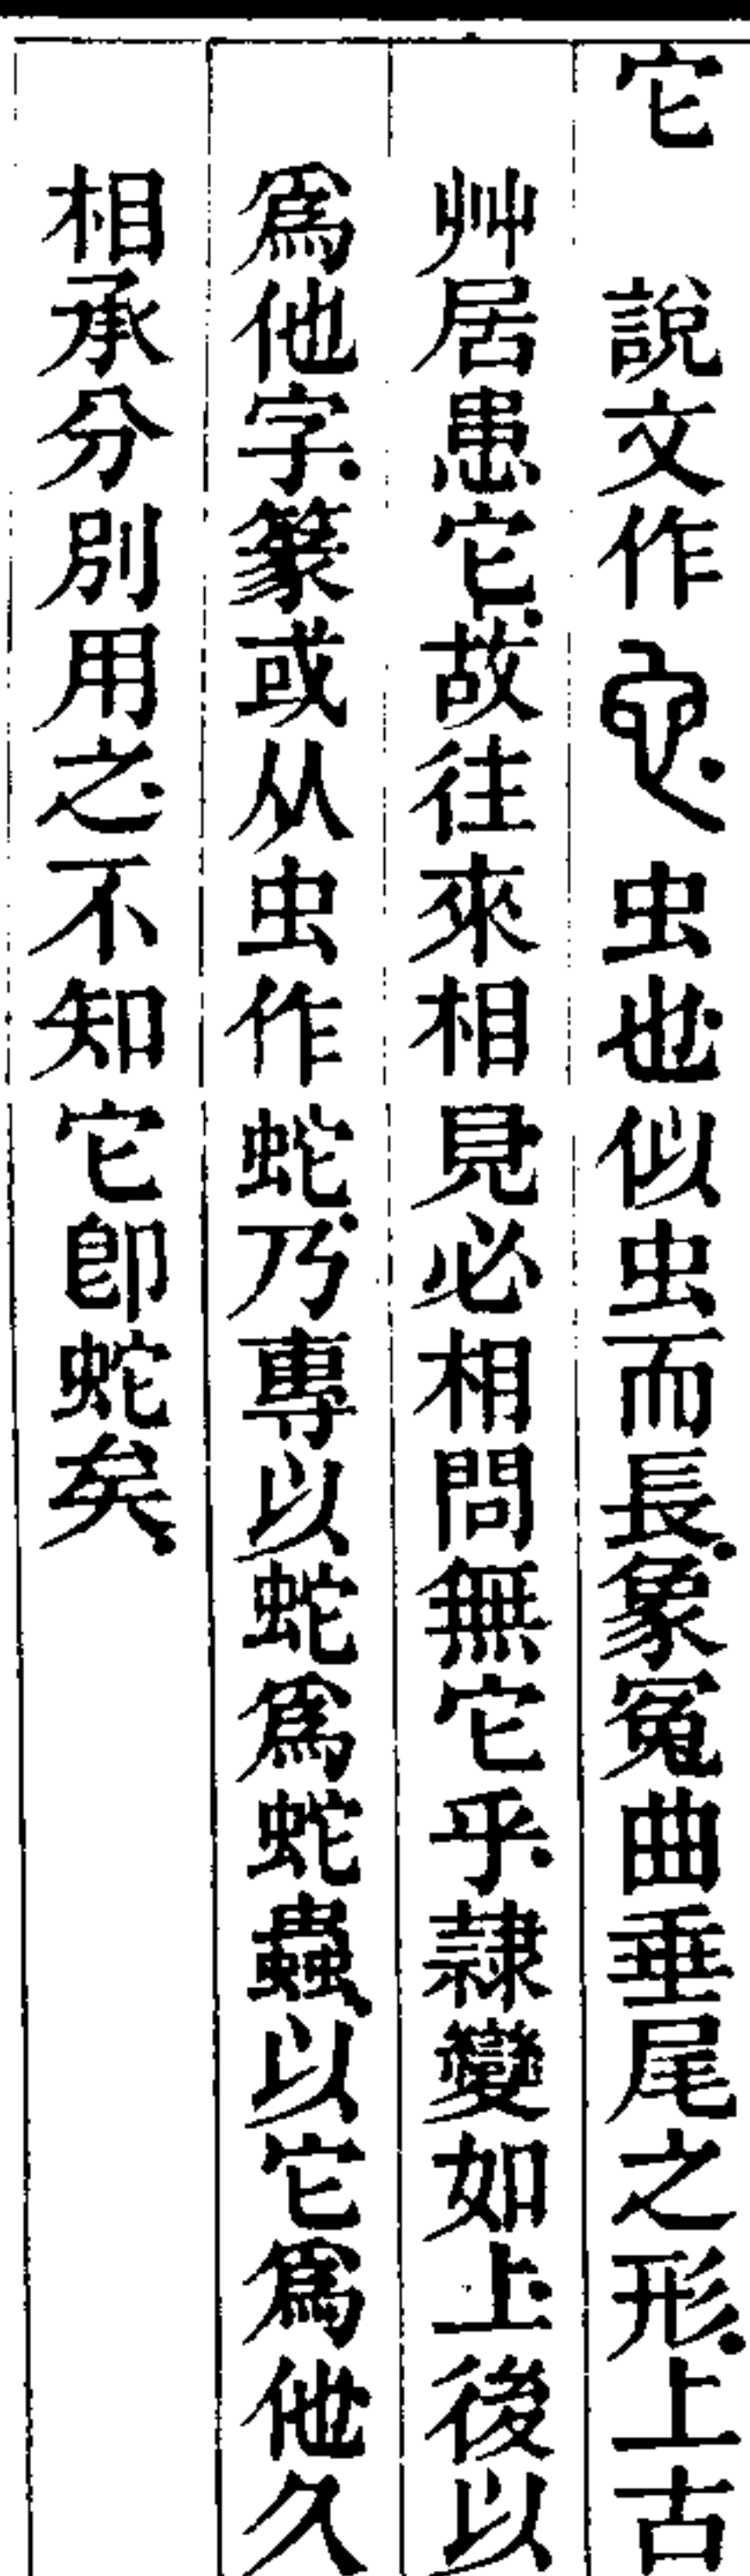 它　說文作虫也似虫而長.象冤曲垂尾之形.上古
艸居患它.故往來相見必相問無它乎.隸變如上.後以
爲他字.篆或从虫作蛇.乃專以蛇爲蛇蟲.以它爲他.久
相承分別用之.不知它卽蛇矣.